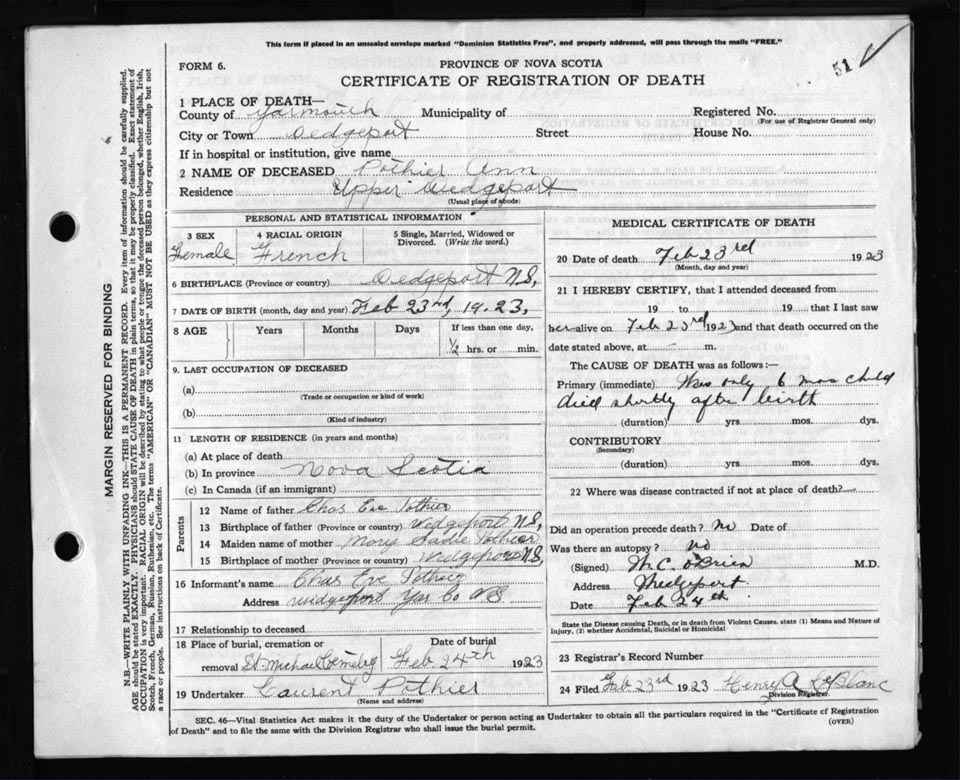 This form if placed in an unsealed envelope marked "Dominion Statistics Free", and properly addressed, will pass through the mails "FREE."
51
FORM 6.
PROVINCE OF NOVA SCOTIA
CERTIFICATE OF REGISTRATION OF DEATH
1 PLACE OF DEATH—
County of Yarmouth Municipality of Registered No.
(For use of Registrar General only)
City or Town Wedgeport Street House No.
If in hospital or institution, give name
2 NAME OF DECEASED Pothier Ann
Residence Upper Wedgeport
(Usual place of abode)
PERSONAL AND STATISTICAL INFORMATION
3 SEX 4 RACIAL ORIGIN 5 Single, Married, Widowed or Divorced. (Write the word.)
Female French
6 BIRTHPLACE (Province or country) Wedgeport N.S,
7 DATE OF BIRTH (month, day and year) Feb 23rd, 19.23,
8 AGE Years Months Days If less than one day,
½ hrs. or min.
9. LAST OCCUPATION OF DECEASED
(a)
(Trade or occupation or kind of work)
(b)
(Kind of industry)
11 LENGTH OF RESIDENCE (in years and months)
(a) At place of death
(b) In province Nova Scotia
(c) In Canada (if an immigrant)
Parents
12 Name of father Chas Eve Pothier
13 Birthplace of father (Province or country) Wedgeport N.S,
14 Maiden name of mother Mary Sadie Pothier
15 Birthplace of mother (Province or country) Wedgeport N.S,
16 Informant's name Chas Eve Pothier
Address Wedgeport Yar Co N S
17 Relationship to deceased
18 Place of burial, cremation or Date of burial
removal St. Michael Feb 24th 1923
19 Undertaker Laurent Pothier
(Name and address)
MEDICAL CERTIFICATE OF DEATH
20 Date of death Feb 23rd 1923
(Month, day and year)
21 I HEREBY CERTIFY, that I attended deceased from
19 to 19 that I last saw
her alive on Feb 23rd 1923 and that death occurred on the
date stated above, at - m.
The CAUSE OF DEATH was as follows:—
Primary (immediate) Was only 6 mos child
died shortly after birth
(duration) yrs mos. dys.
CONTRIBUTORY
(Secondary)
(duration) yrs. mos. dys.
22 Where was disease contracted if not at place of death?
Did an operation precede death? no Date of
Was there an autopsy? no
(Signed) W.C. O'Brien M.D.
Address Wedgeport
Date Feb 24th
State the Disease causing Death, or in death from Violent Causes, state (1) Means and Nature of
Injury, (2) whether Accidental, Suicidal or Homicidal
23 Registrar's Record Number
24 Filed Feb 23rd 1923 Henry A LeBlanc
Division Registrar
SEC. 46—Vital Statistics Act makes it the duty of the Undertaker or person acting as Undertaker to obtain all the particulars required in the "Certificate of Registration
of Death" and to file the same with the Division Registrar who shall issue the burial permit.
(OVER)
MARGIN RESERVED FOR BINDING
N.B.—WRITE PLAINLY WITH UNFADING INK—THIS IS A PERMANENT RECORD. Every item of information should be carefully supplied.
AGE should be stated EXACTLY. PHYSICIANS should STATE CAUSE OF DEATH in plain terms, so that it may be properly classified. Exact statement of
OCCUPATION is very important. RACIAL ORIGIN will be described by stating to what people or tongue the deceased person belonged, whether English, Irish,
Scotch, French, German, Russian, Ruthenian, etc. The terms "AMERICAN" OR "CANADIAN" MUST NOT BE USED as they express citizenship but not
a race or people. See instructions on back of Certificate.